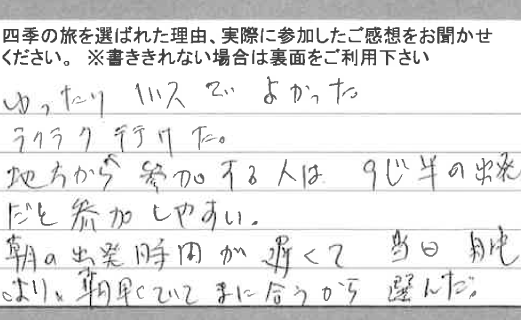 四季の旅を選ばれた理由、実際に参加したご感想をお聞かせ
ください。 ※書ききれない場合は裏面をご利用下さい
ゆったり バスでよかった
ラクラク 行けた。
地方から参加する人は 9じ半の出発
だと参加しやすい。
朝の出発時間が遅くて 当日
より、朝早くでてまに合うから 選んだ。